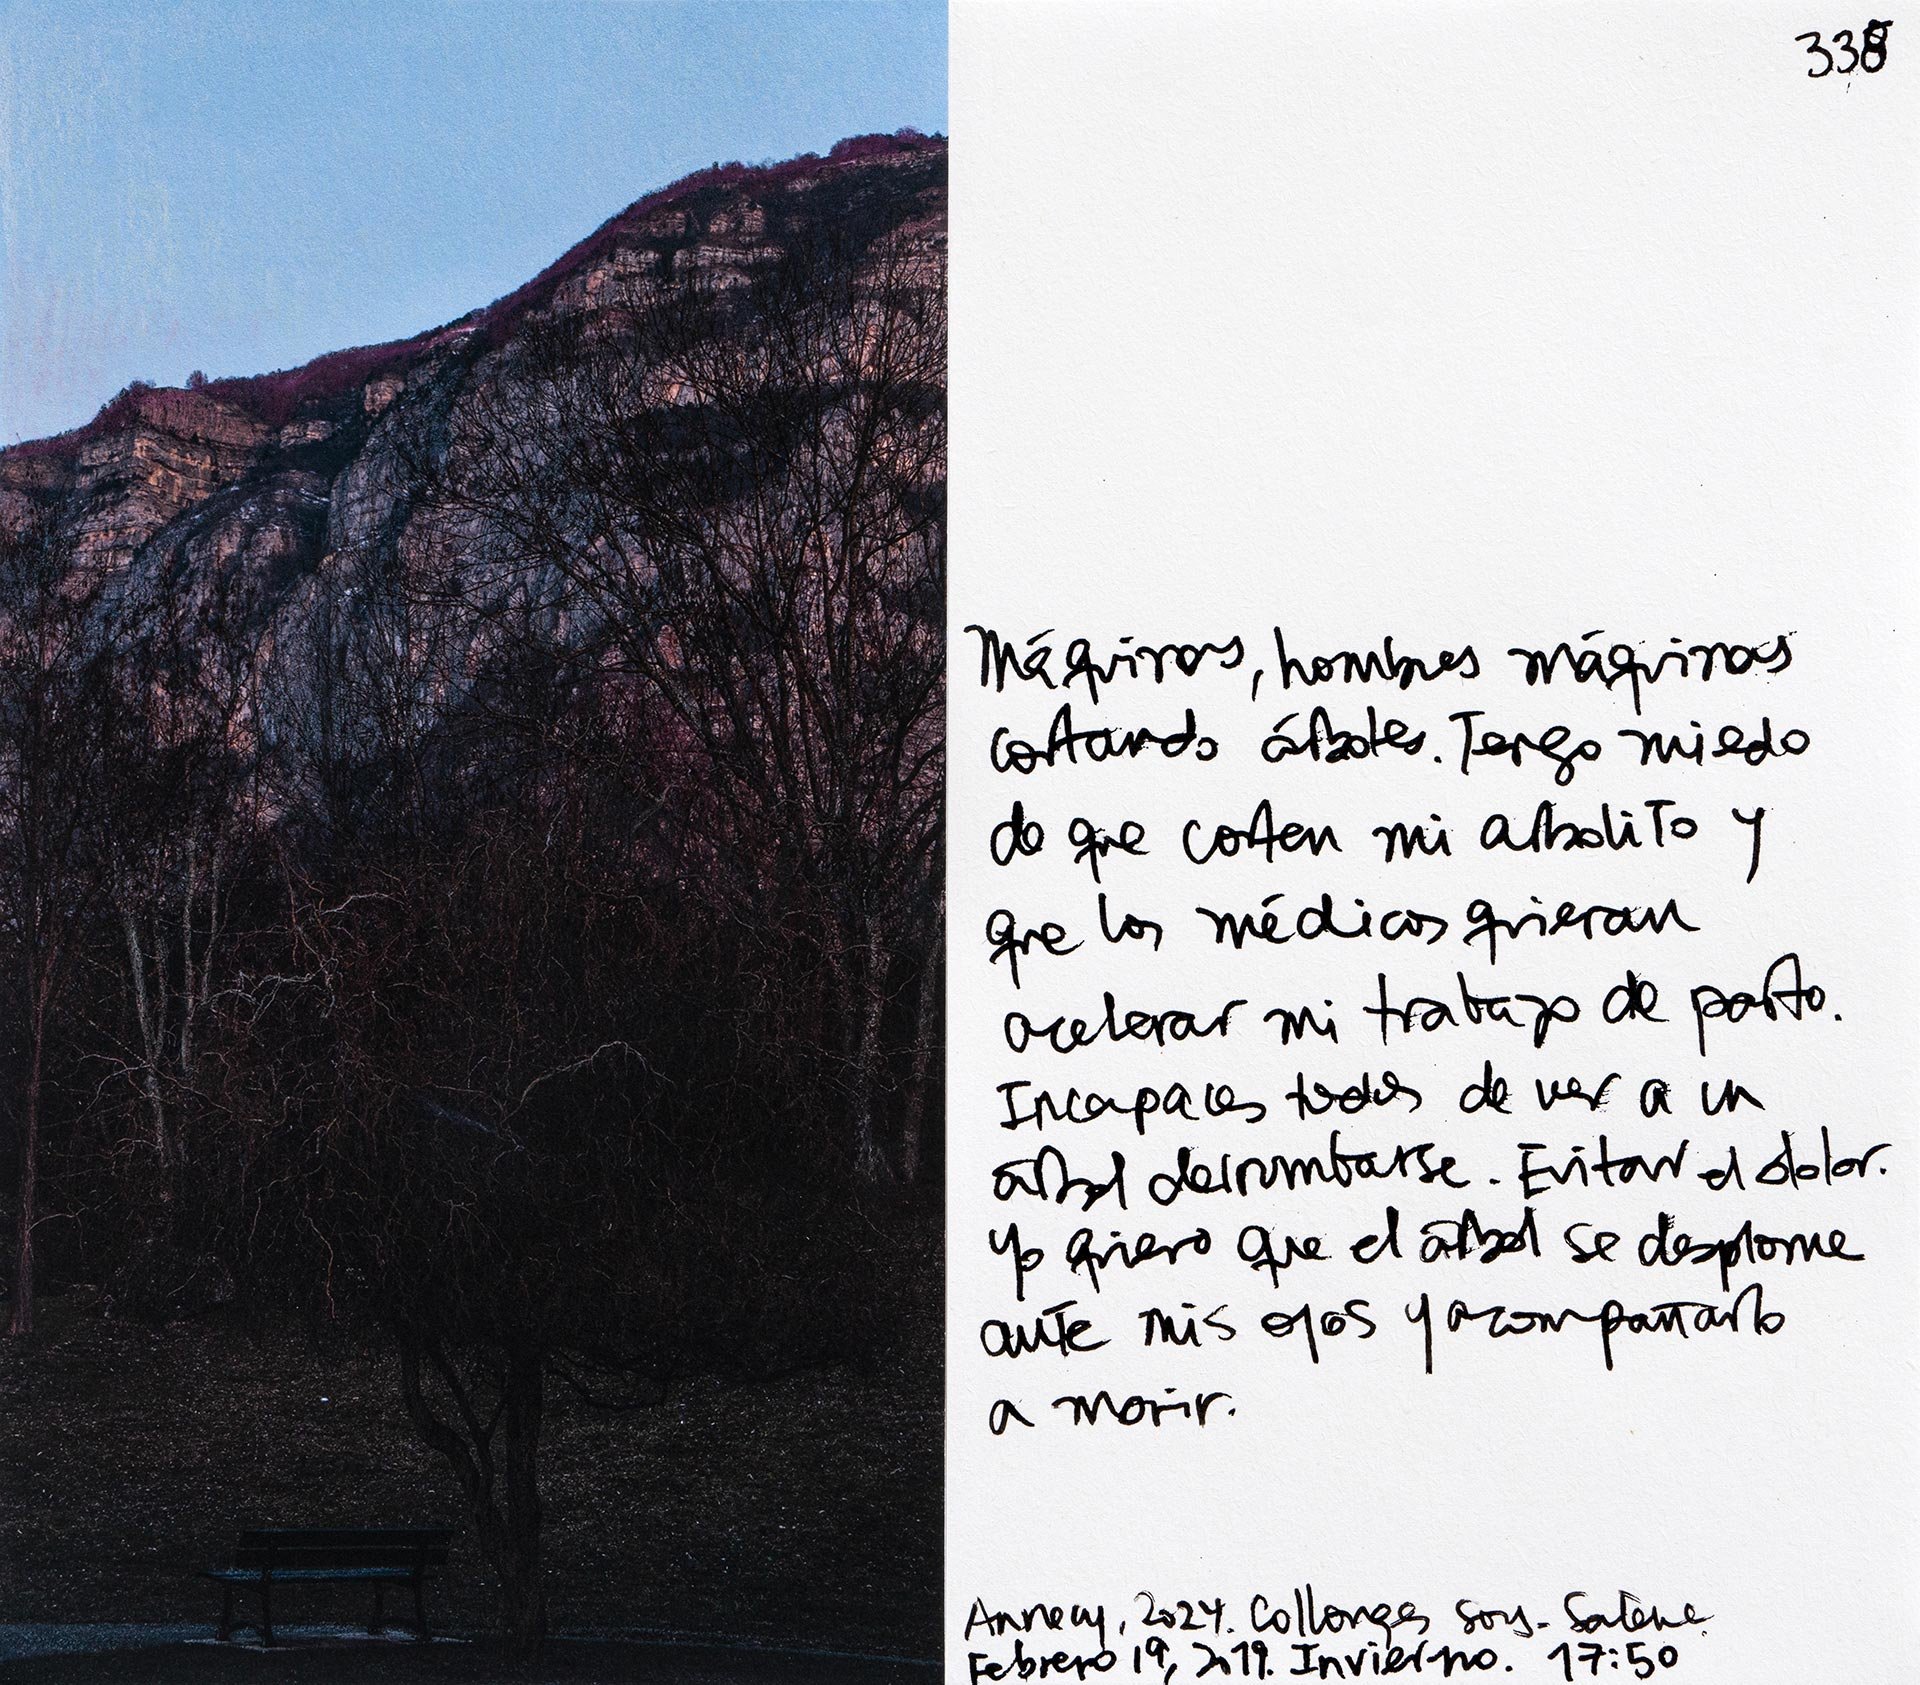 Máquinas, hombres máquinas
cortando árboles. Tengo miedo
de que corten mi arbolito y
que los médicos quieran
acelerar mi trabajo de parto.
Incapaces todos de ver a un
árbol derrumbarse. Evitar el dolor.
Yo quiero que el árbol se desplome
ante mis ojos y acompañarlo
a morir.
Annecy, 2024. Collonges sous-Salève
Febrero 19, 2019. Invierno. 17:50